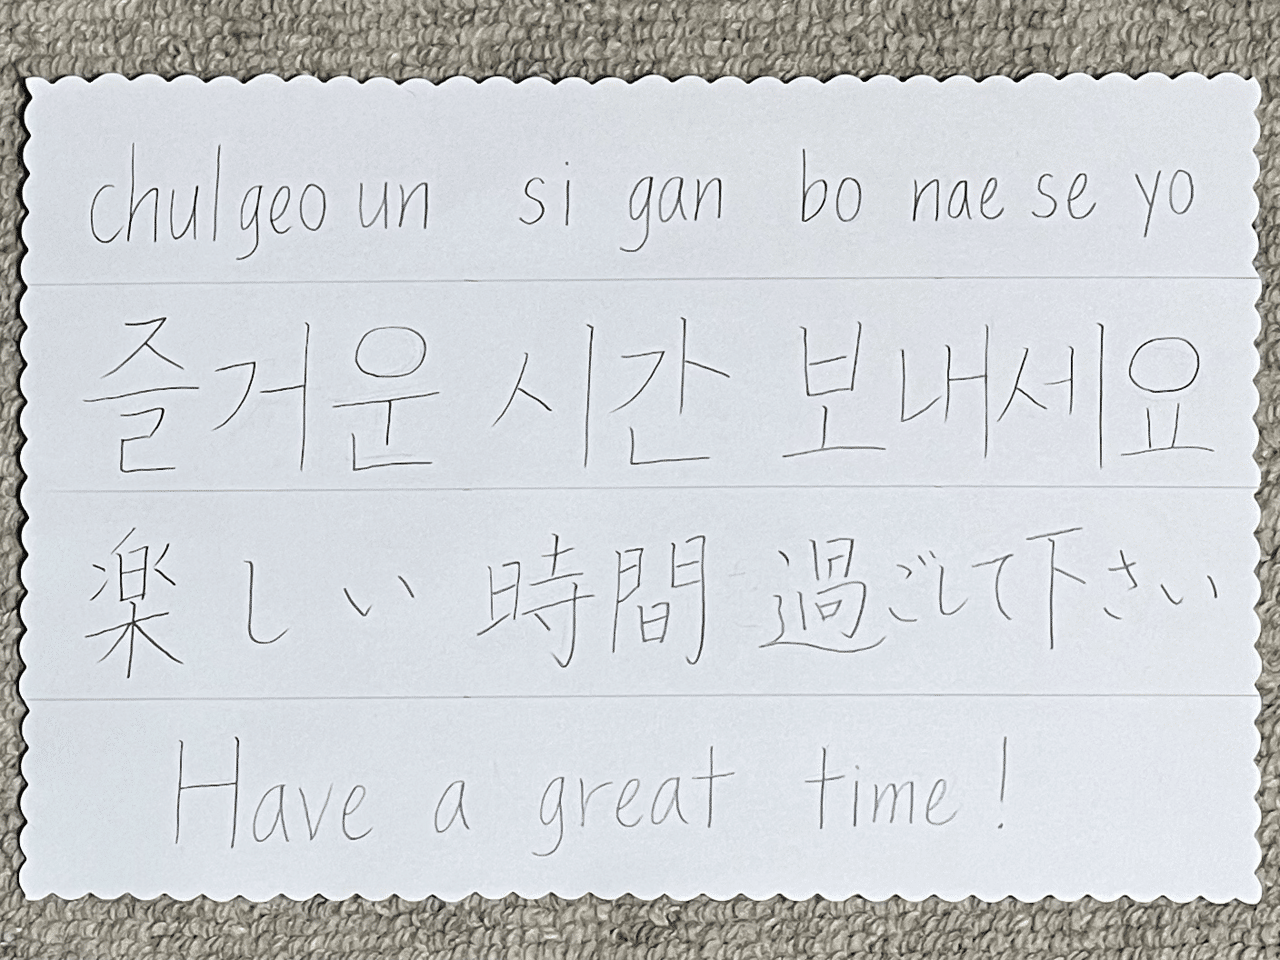 chulgeo un si gan bo nae se yo
즐거운 시간 보내세요
楽しい 時間 過ごして下さい
Have a great time!